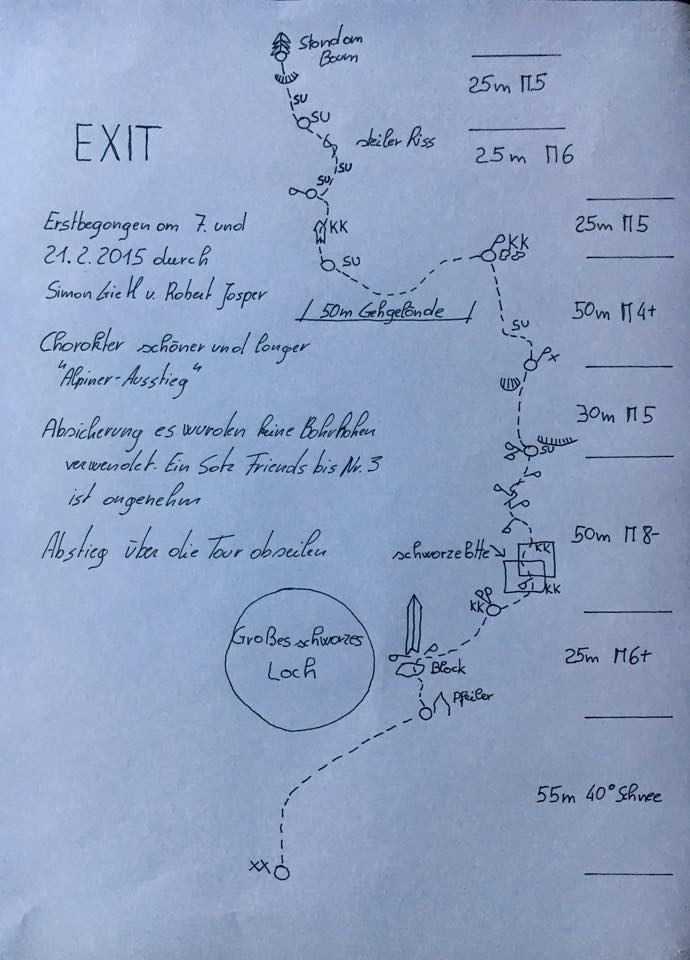 Stand am
Baum
25m M5
SU
SU
EXIT
steiler Riss
25m M6
SU
SU
KK
Erstbegangen am 7. und
21.2.2015 durch
Simon Gietl u. Robert Jasper
SU
KK
25m M5
50m Gehgelände
50m M4+
SU
Charakter schöner und langer
"Alpiner-Ausstieg"
x
30m M5
Absicherung es wurden keine Bohrhaken
verwendet. Ein Satz Friends bis Nr. 3
ist angenehm
SU
50m M8-
Abstieg über die Tour abseilen
schwarze
KK
KK
KK
Großes schwarzes
Loch
Block
25m M6+
Pfeiler
55m 40° Schnee
XX